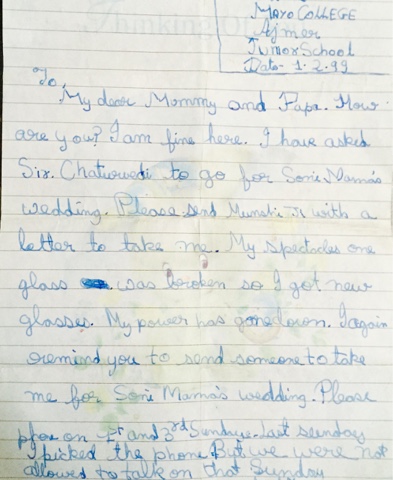 Thinking Of
Mayo COLLEGE
Ajmer
Junior School
Date- 1.2.99
To,
My dear Mommy and Papa. How
are you? I am fine here. I have asked
Sir. Chaturvedi to go for Soni Mama's
wedding. Please send Munshi Ji with a
letter to take me. My spectacles one
glass was broken so I got new
glasses. My power has gone down. I again
remind you to send someone to take
me for Soni Mama's wedding. Please
on 1st and 3rd Sunday. Last sunday
I picked the phone. But we were not
allowed to talk on that Sunday